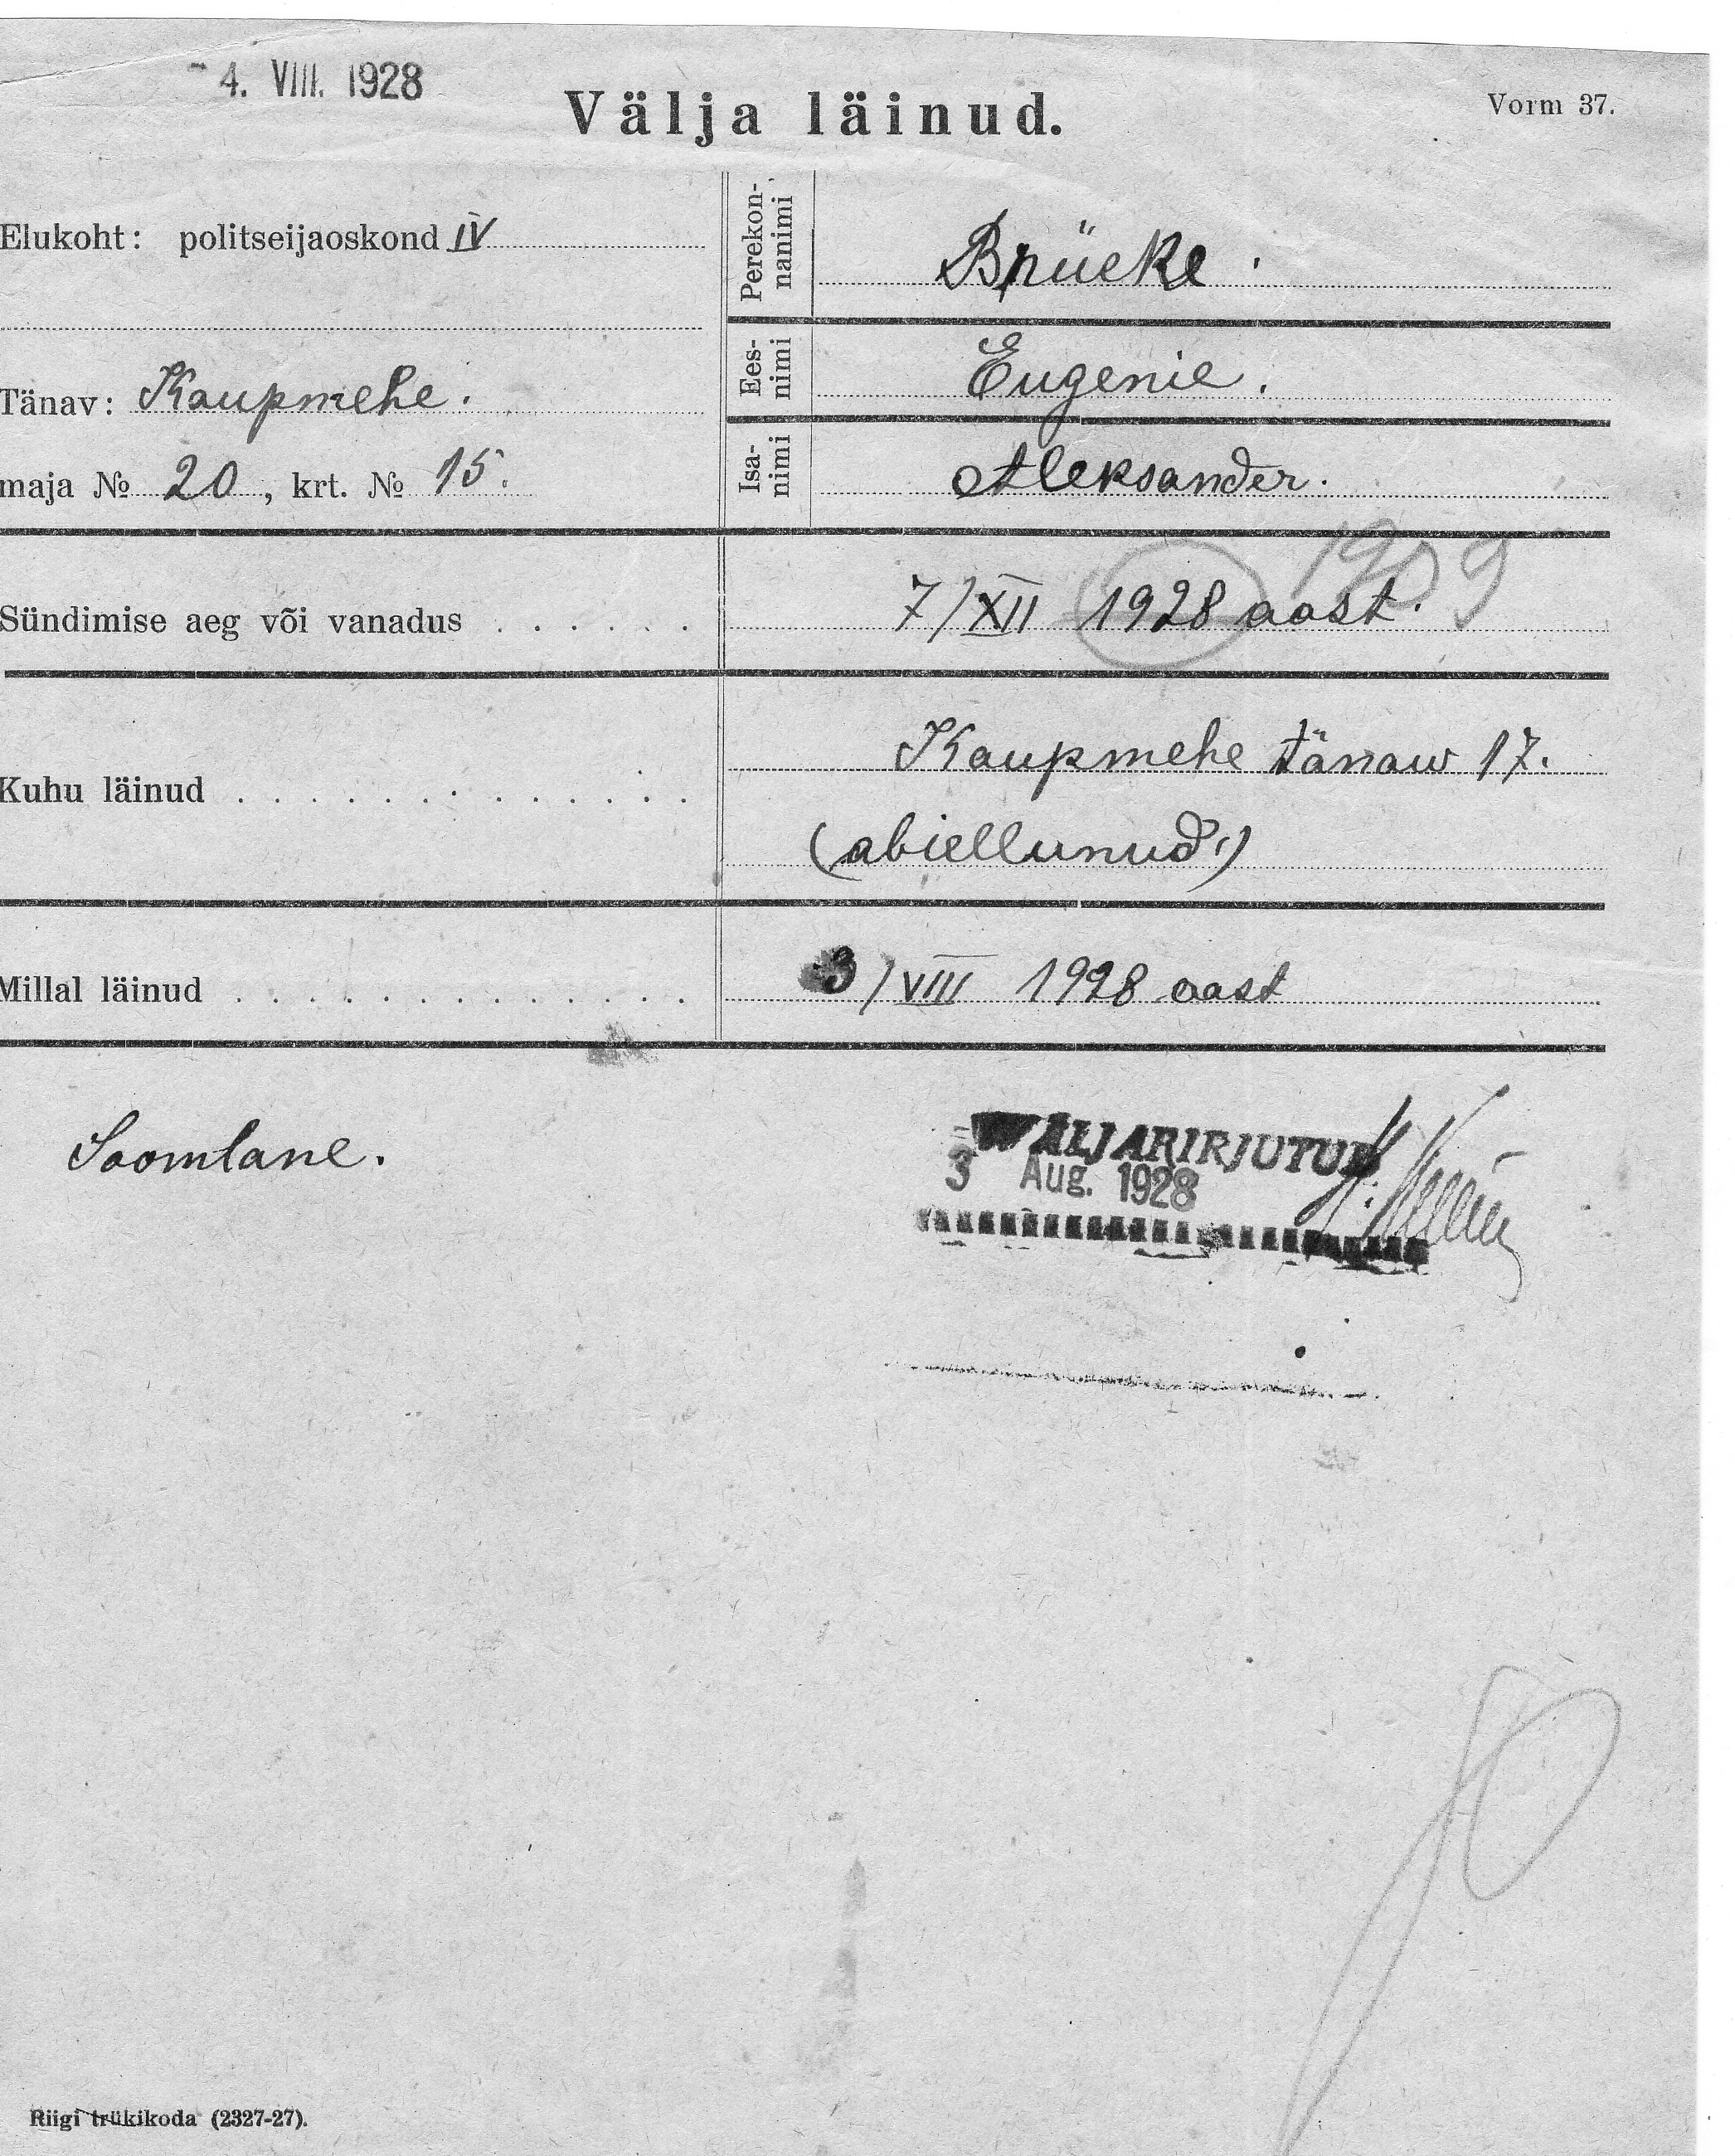 4. VIII. 1928
Välja läinud.
Vorm 37.
Elukoht: politseijaoskond IV
Tänav: Kaupmehe.
maja № 20, krt. № 15.
Perekon-
nanimi
Brücke.
Ees-
nimi
Eugenie.
Isa-
nimi
Aleksander.
1909
Sündimise aeg või vanadus . . . . . . 7/XII 1928 aast.
Kuhu läinud . . . . . . . . . . . . . Kaupmehe tänaw 17.
(abiellunud.)
Millal läinud . . . . . . . . . . . . . 3/VIII 1928 aast
Soomlane.
WÄLJARIRJUTUD
3 Aug. 1928
Riigi trükikoda (2327-27).